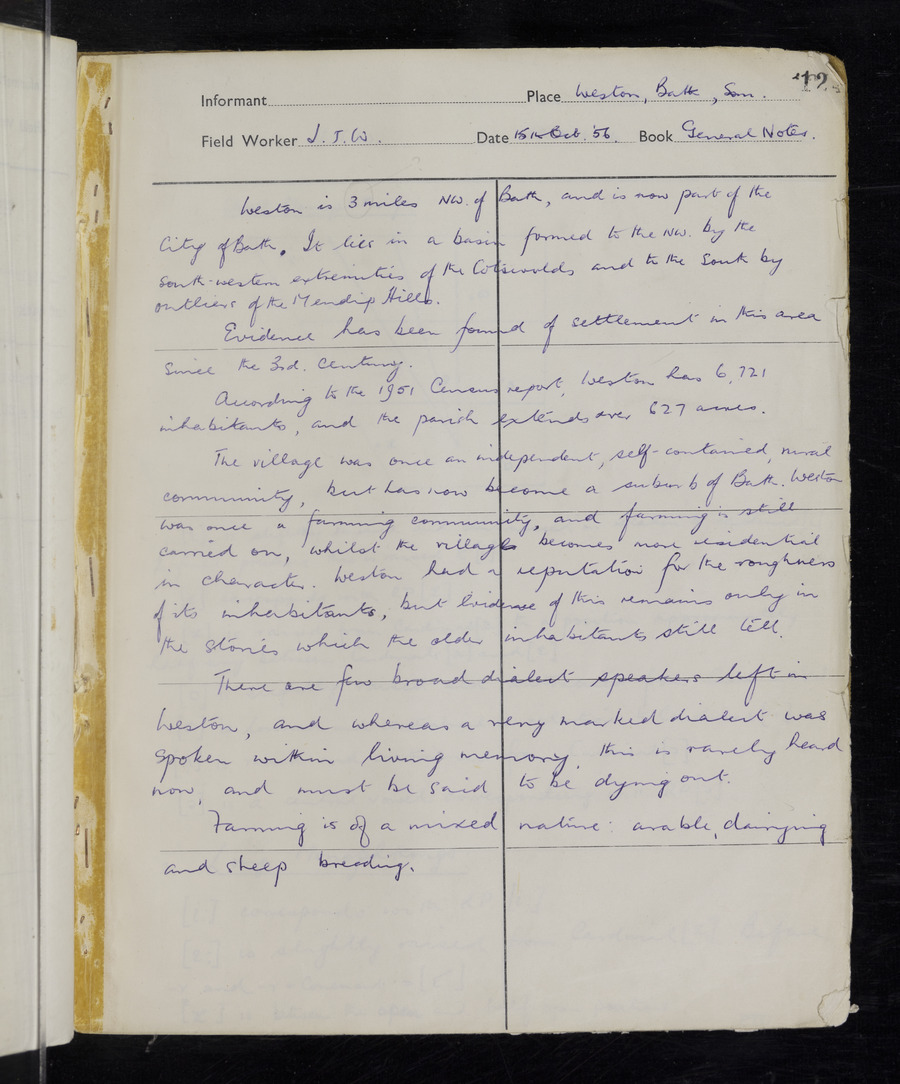 12
Informant Place Weston, Bath, Som.
Field Worker J. T. W. Date 15th Oct. '56. Book General Notes.
Weston is 3 miles NW. of Bath, and is now part of the
City of Bath. It lies in a basin formed to the NW. by the
south-western extremities of the Cotswolds and to the South by
outliers of the Mendip Hills.
Evidence has been found of settlement in this area
since the 3rd. century.
According to the 1951 Census report, Weston has 6,721
inhabitants, and the parish extends over 627 acres.
The village was once an independent, self-contained, rural
community, but has now become a suburb of Bath. Weston
was once a farming community, and farming is still
carried on, whilst the village becomes more residential
in character. Weston had a reputation for the roughness
of its inhabitants, but evidence of this remains only in
the stories which the older inhabitants still tell.
There are few broad dialect speakers left in
Weston, and whereas a very marked dialect was
spoken within living memory, this is rarely heard
now, and must be said to be dying out.
Farming is of a mixed nature: arable, dairying
and sheep breeding.